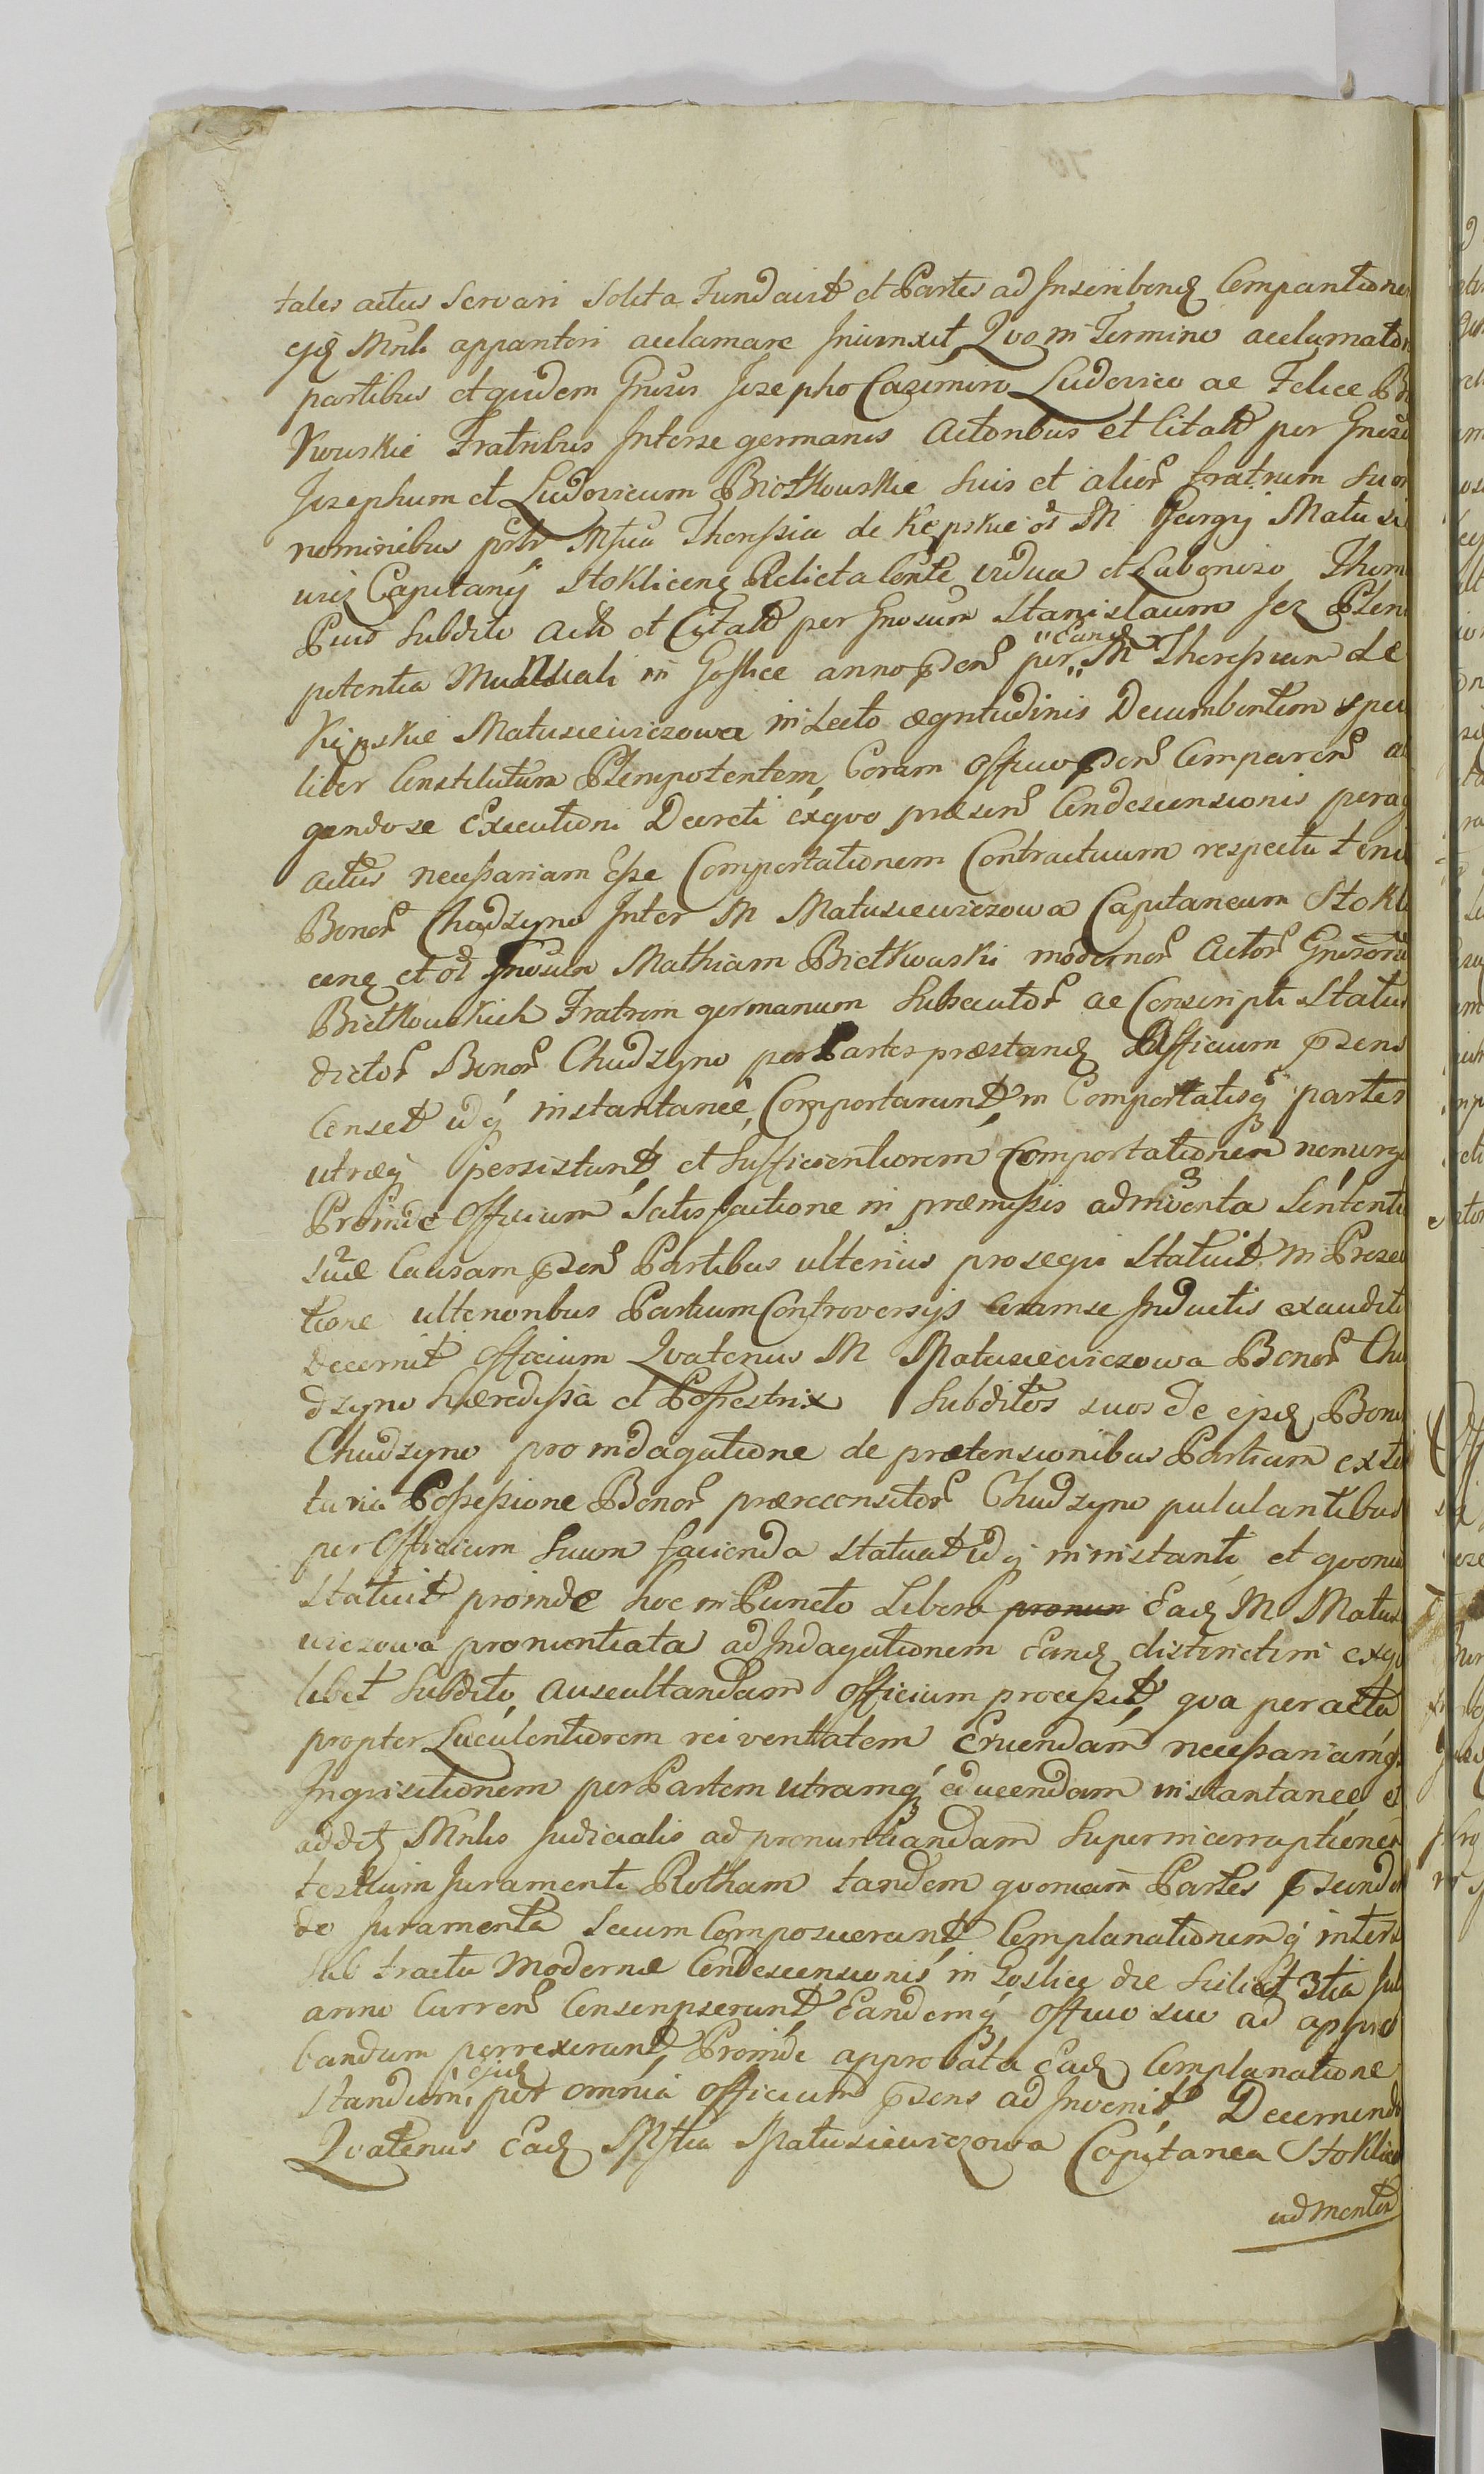 tales actus servari solita Fundavit et Partes ad Inscribend Comparitione
ejd Mnli apparitori acclamare Iniunxit Qvo in Termino acclamator
partibus et quidem Gnosis Josepho Casimiro Ludovico ac Felice Bi
Kowskie Fratribus Interse germanis Actoribus et Citatt per Gnosu
Josephum et Ludovicum Biotkowskie suis et alior fratrum suor
nominibus Mfca Theressia de Kępskie M Georgij Matusi
Capitanij Stokliceng Relicta Conte vidua et Laborioso Thom
subdito Acto et Citatt per Gnosum Stanislaum Jez Plen
potentia Manuali in Goslice anno pdsens per "eand" M Theressiam de
Kępskie Matusiewiczowa in Lecto aegritudinis Decumbentem spec
liter Constitutum Plenipotentem, Coram Officio psens Comparens a
gendo se Executioni Decreti exqvo praesens Condescensionis perag
actus necessariam Esse Comportationem Contractuum respectu tenu
Bonor Chudzyno Inter M Matusiewiczowa Capitaneam Stokli
ceng et ol Gnosum Mathiam Bietkowski modernor Actor Gnosoru
Bietkowskich Fratrem germanum Subsecutor ac Conscripti Status
dictor Bonor Chudzyno per Partes praestand Officium psens
Censet idq instantanee, Comportarunt, in Comportatisq partes
utraeq persistunt, et Sufficientiorem Comportationem nonurge
Proinde Officium Satisfactione in praemissis adinventa Sententi
suae Causam psens Partibus ulterius prosequi Statuit. In Prosec
tione ulterioribus Partium Controversijs Coramse Inductis exaudit
Decernit Officium Qvatenus M Matusiewiczowa Bonor Chu
dzyno Haeredissa et Possestrix Subditos suos de ejsd Bonis
Chudzyno pro indagatione de praetensionibus Partium ex
Possessione Bonor praereconsitor Chudzyno pululantibus
per Officium Suum facienda Statuat idq ininstanti, et qvoni
Statuit proinde hoc in Puncto Libera pronun Ead M Matus
wiczowa pronuntiata ad Indagationem Eand districtim exqo
libet Subdito, Auscultandam Officium processit, qva peracta
propter Luculentiorem rei veritatem Eruendam necessariamq
Inqvisitionem per Partem utramq educendam instantanee et
addit Mnlis Judicialis ad pronuntiandam Superincorruptionem
testium Juramenti Rotham tandem qvoniam Partes
de Juramenta secum Composuerunt, Complanationemq interse
sub tractu Modernae Condescensionis in Goslice die Scilicet 3tia Jul
anno Currens Conscripserunt, Eandemq Officio suo ad appro
bandum porrexerunt, Proinde approbata Ead Complanatione
standum ejus per omnia Officium psens ad Invenit, Decernendo
Qvatenus Ead Mfca Matusiewiczowa Capitanea Stoklice
ad mentem